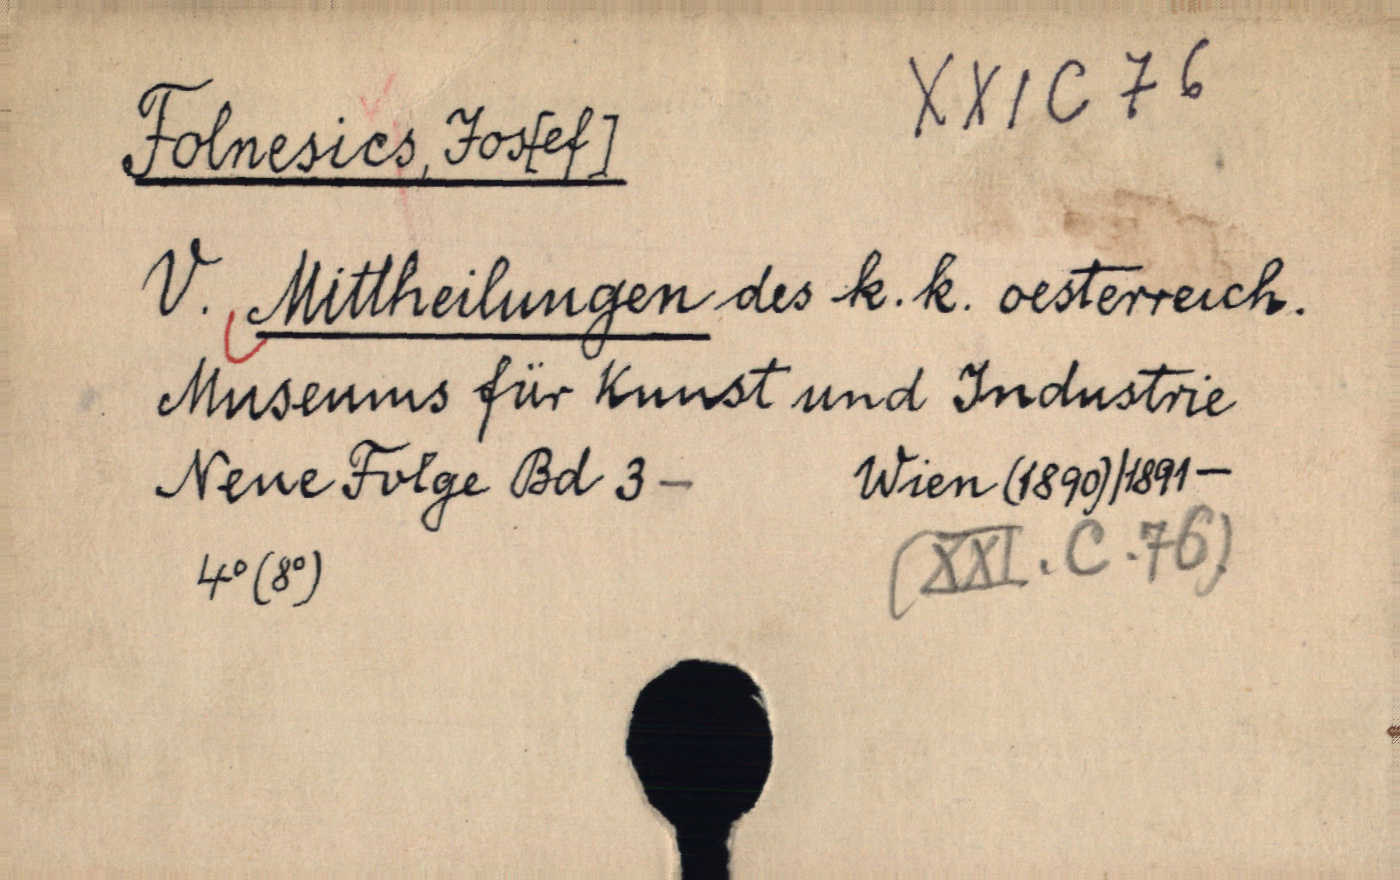 XXI C 76
Folnesics, Jos[ef]
V. Mittheilungen des k. k. oesterreich.
Museums für Kunst und Industrie
Neue Folge Bd 3 – Wien (1890)/1891 –
(XXI. C. 76)
4° (8°)